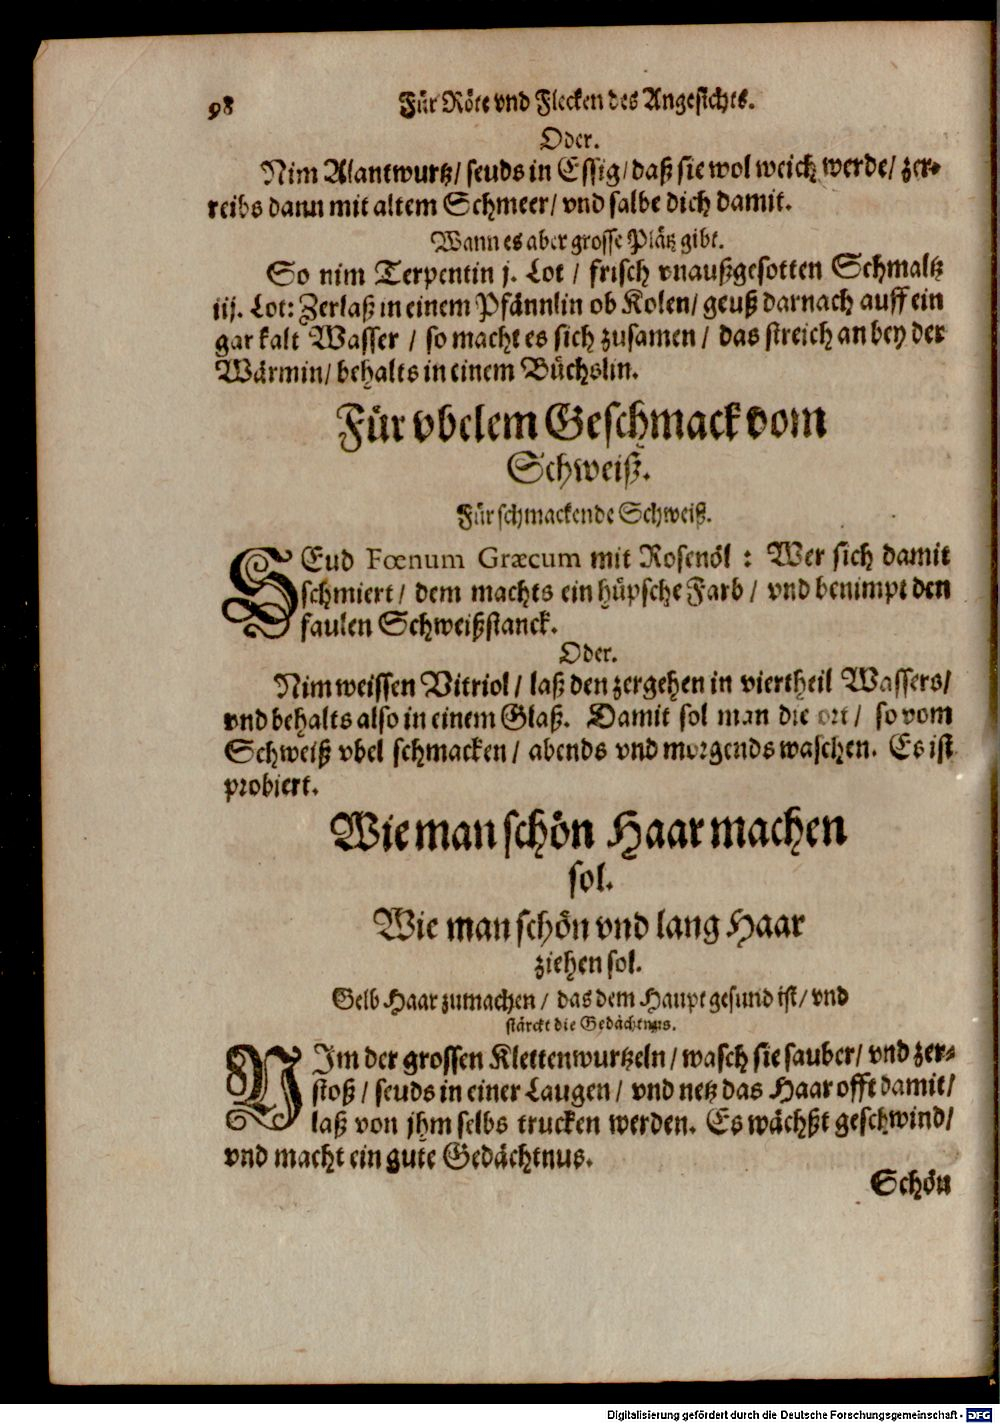 98 Für Röte vnd Flecken des Angesichts.
Oder.
Nim Alantwurtz/ seuds in Essig/ daß sie wol weich werde/ zer-
reibs dann mit altem Schmeer/ vnd salbe dich damit.
Wann es aber grosse Plätz gibt.
So nim Terpentin j. Lot / frisch vnaußgesotten Schmaltz
iij. Lot: Zerlaß in einem Pfännlin ob Kolen/ geuß darnach auff ein
gar kalt Wasser / so macht es sich zusamen / das streich an bey der
Wärmin/ behalts in einem Büchslin.
Für vbelem Geschmack vom
Schweiß.
Für schmackende Schweiß.
SEud Fœnum Græcum mit Rosenöl : Wer sich damit
schmiert/ dem machts ein hüpsche Farb / vnd benimpt den
faulen Schweißstanck.
Oder.
Nim weissen Vitriol / laß den zergehen in viertheil Wassers/
vnd behalts also in einem Glaß. Damit sol man die ort/ so vom
Schweiß vbel schmacken / abends vnd morgends waschen. Es ist
probiert.
Wie man schön Haar machen
sol.
Wie man schön vnd lang Haar
ziehen sol.
Gelb Haar zumachen / das dem Haupt gesund ist/ vnd
stärckt die Gedächtnus.
NIm der grossen Klettenwurtzeln / wasch sie sauber/ vnd zer-
stoß / seuds in einer Laugen / vnd netz das Haar offt damit/
laß von jhm selbs trucken werden. Es wächßt geschwind/
vnd macht ein gute Gedächtnus.
Schön
Digitalisierung gefördert durch die Deutsche Forschungsgemeinschaft - DFG